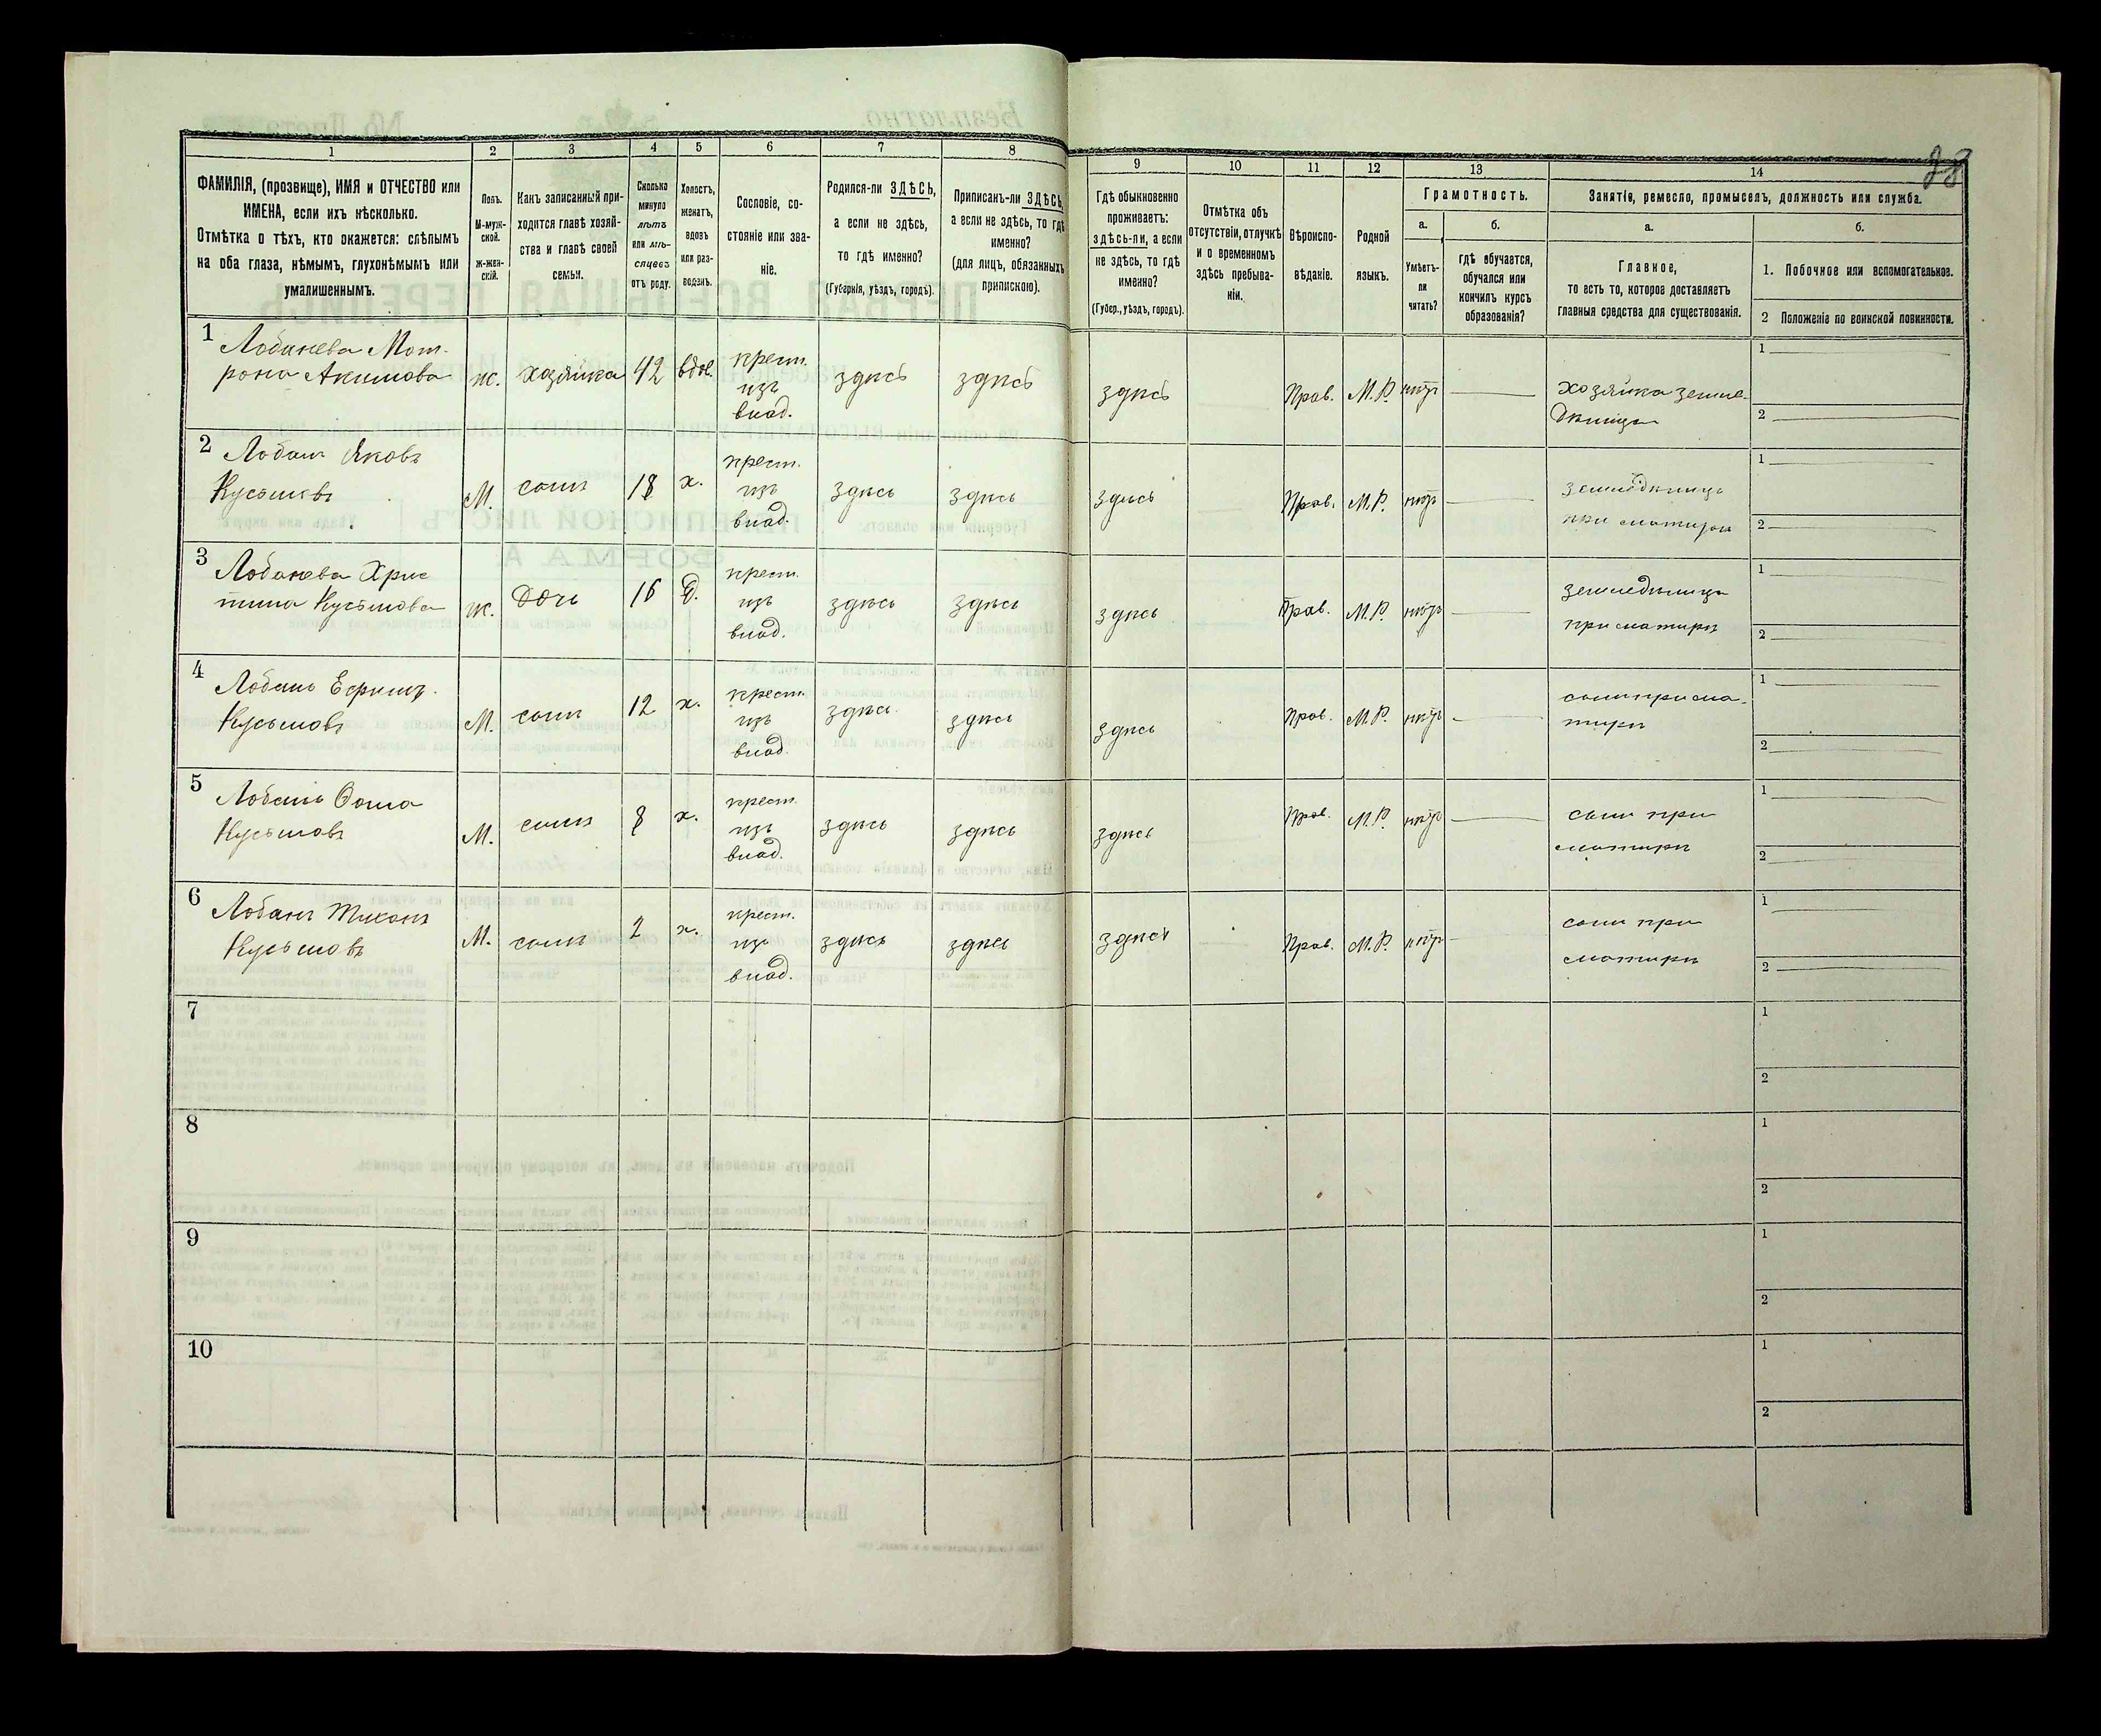 38
1 2 3 4 5 6 7 8 9 10 11 12 13 14
ФАМИЛІЯ, (прозвище), ИМЯ и ОТЧЕСТВО или
ИМЕНА, если ихъ нѣсколько.
Отмѣтка о тѣхъ, кто окажется: слѣпымъ
на оба глаза, нѣмымъ, глухонѣмымъ или
умалишеннымъ.
Полъ.
М-муж-
ской.
ж-жен-
скій.
Какъ записанный при-
ходится главѣ хозяй-
ства и главѣ своей
семьи.
Сколько
минуло
лѣтъ
или мѣ-
сяцевъ
отъ роду.
Холостъ,
женатъ,
вдовъ
или раз-
веденъ.
Сословіе, со-
стояніе или зва-
ніе.
Родился-ли ЗДѢСЬ,
а если не здѣсь,
то гдѣ именно?
(Губернія, уѣздъ, городъ).
Приписанъ-ли ЗДѢСЬ,
а если не здѣсь, то гдѣ
именно?
(для лицъ, обязанныхъ
припискою).
Гдѣ обыкновенно
проживаетъ:
здѣсь-ли, а если
не здѣсь, то гдѣ
именно?
(Губер., уѣздъ, городъ).
Отмѣтка объ
отсутствіи, отлучкѣ
и о временномъ
здѣсь пребыва-
ніи.
Вѣроиспо-
вѣданіе.
Родной
языкъ.
Грамотность.
а.
Умѣетъ-
ли
читать?
б.
гдѣ обучается,
обучался или
кончилъ курсъ
образованія?
Занятіе, ремесло, промыселъ, должность или служба.
а.
Главное,
то есть то, которое доставляетъ
главныя средства для существованія.
б.
1. Побочное или вспомогательное.
2 Положеніе по воинской повинности.
1 Лобанева Мот-
рона Акимова
ж. хозяйка 42 вдов.
крест.
изъ
влад.
здѣсь здѣсь здѣсь Прав. М.Р. нѣтъ
хозяйка земле-
дѣлица
1
2
2 Лобань Яковъ
Кусьмовъ
М. сынъ 18 х.
крест.
изъ
влад.
здѣсь здѣсь здѣсь Прав. М.Р. нѣтъ
при матери
1
2
3 Лобанева Хрис
тина Кусьмова
ж. дочь 16 д.
крест.
изъ
влад.
здѣсь здѣсь здѣсь Прав. М.Р. нѣтъ
земледѣлица
при матери
1
2
4 Лобань Ефимъ
Кусьмовъ
М. сынъ 12 х.
крест.
изъ
влад.
здѣсь здѣсь здѣсь Прав. М.Р. нѣтъ
сынъ при ма-
тери
1
2
5 Лобань Ѳома
Кусьмовъ
М. сынъ 8 х.
крест.
изъ
влад.
здѣсь здѣсь здѣсь Прав. М.Р. нѣтъ
сынъ при
матери
1
2
6 Лобань Тихонъ
Кусьмовъ
М. сынъ 2 х.
крест.
изъ
влад.
здѣсь здѣсь здѣсь Прав. М.Р. нѣтъ
сынъ при
матери
1
2
7
1
2
8
1
2
9
1
2
10
1
2